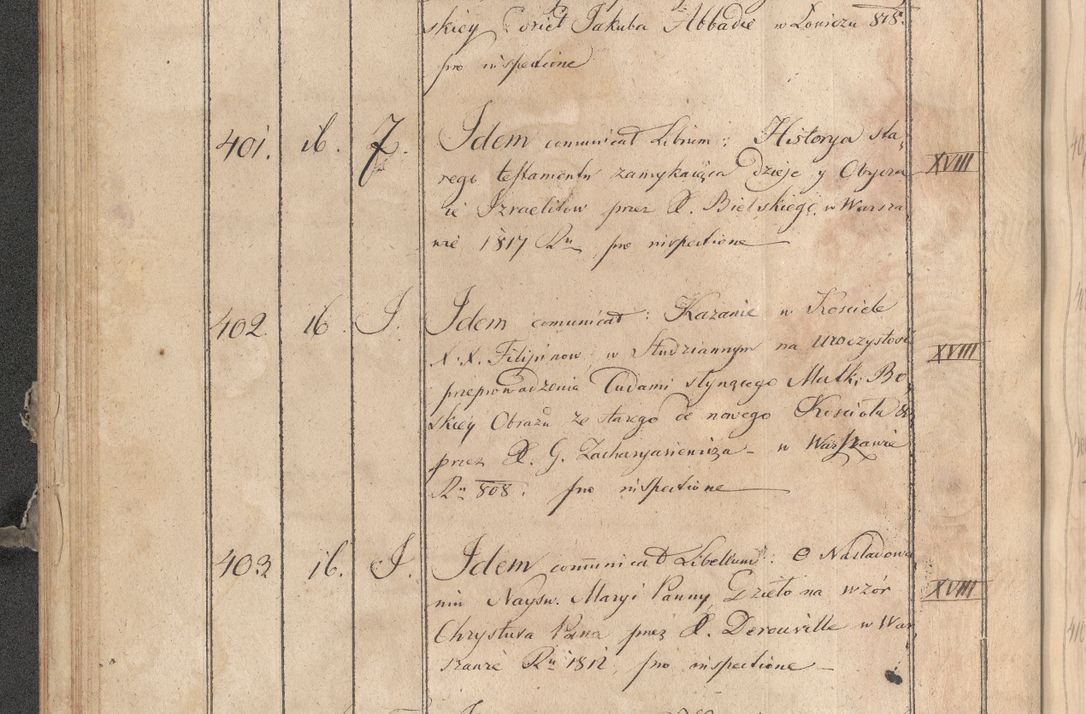 skiey Jakuba Abbadie w Łowiczu 818.
pro inspectione
401. ib. J. Idem comunicat Librum: Historya sta, XVIII
rego testamentu zamykaiąca dzieje y Obycza
ie Izraelitow przez X. Bielskiego. w Warsza
wie 1817 Ru pro inspectione
402. 16. J. Idem comunicat: Kazanie w Kosciele
X.X. Filipinow w Studziannym na uroczystość XVIII
przeprowadzenia Cudami słynącego Matki Bo
skiey Obrazu ze starego do nowego Kościoła
przez X. G. Zacharyasiewicza - w Warszawie
Ru 808. pro inspectione
403 16. J. Idem comunicat Libellum: O Nasladowa
niu Nayśw. Maryi Panny, Dzieło na wzór XVIII
Chrystusa Pana przez X. Derouville w War,
szawie Ru 1812, pro inspectione -